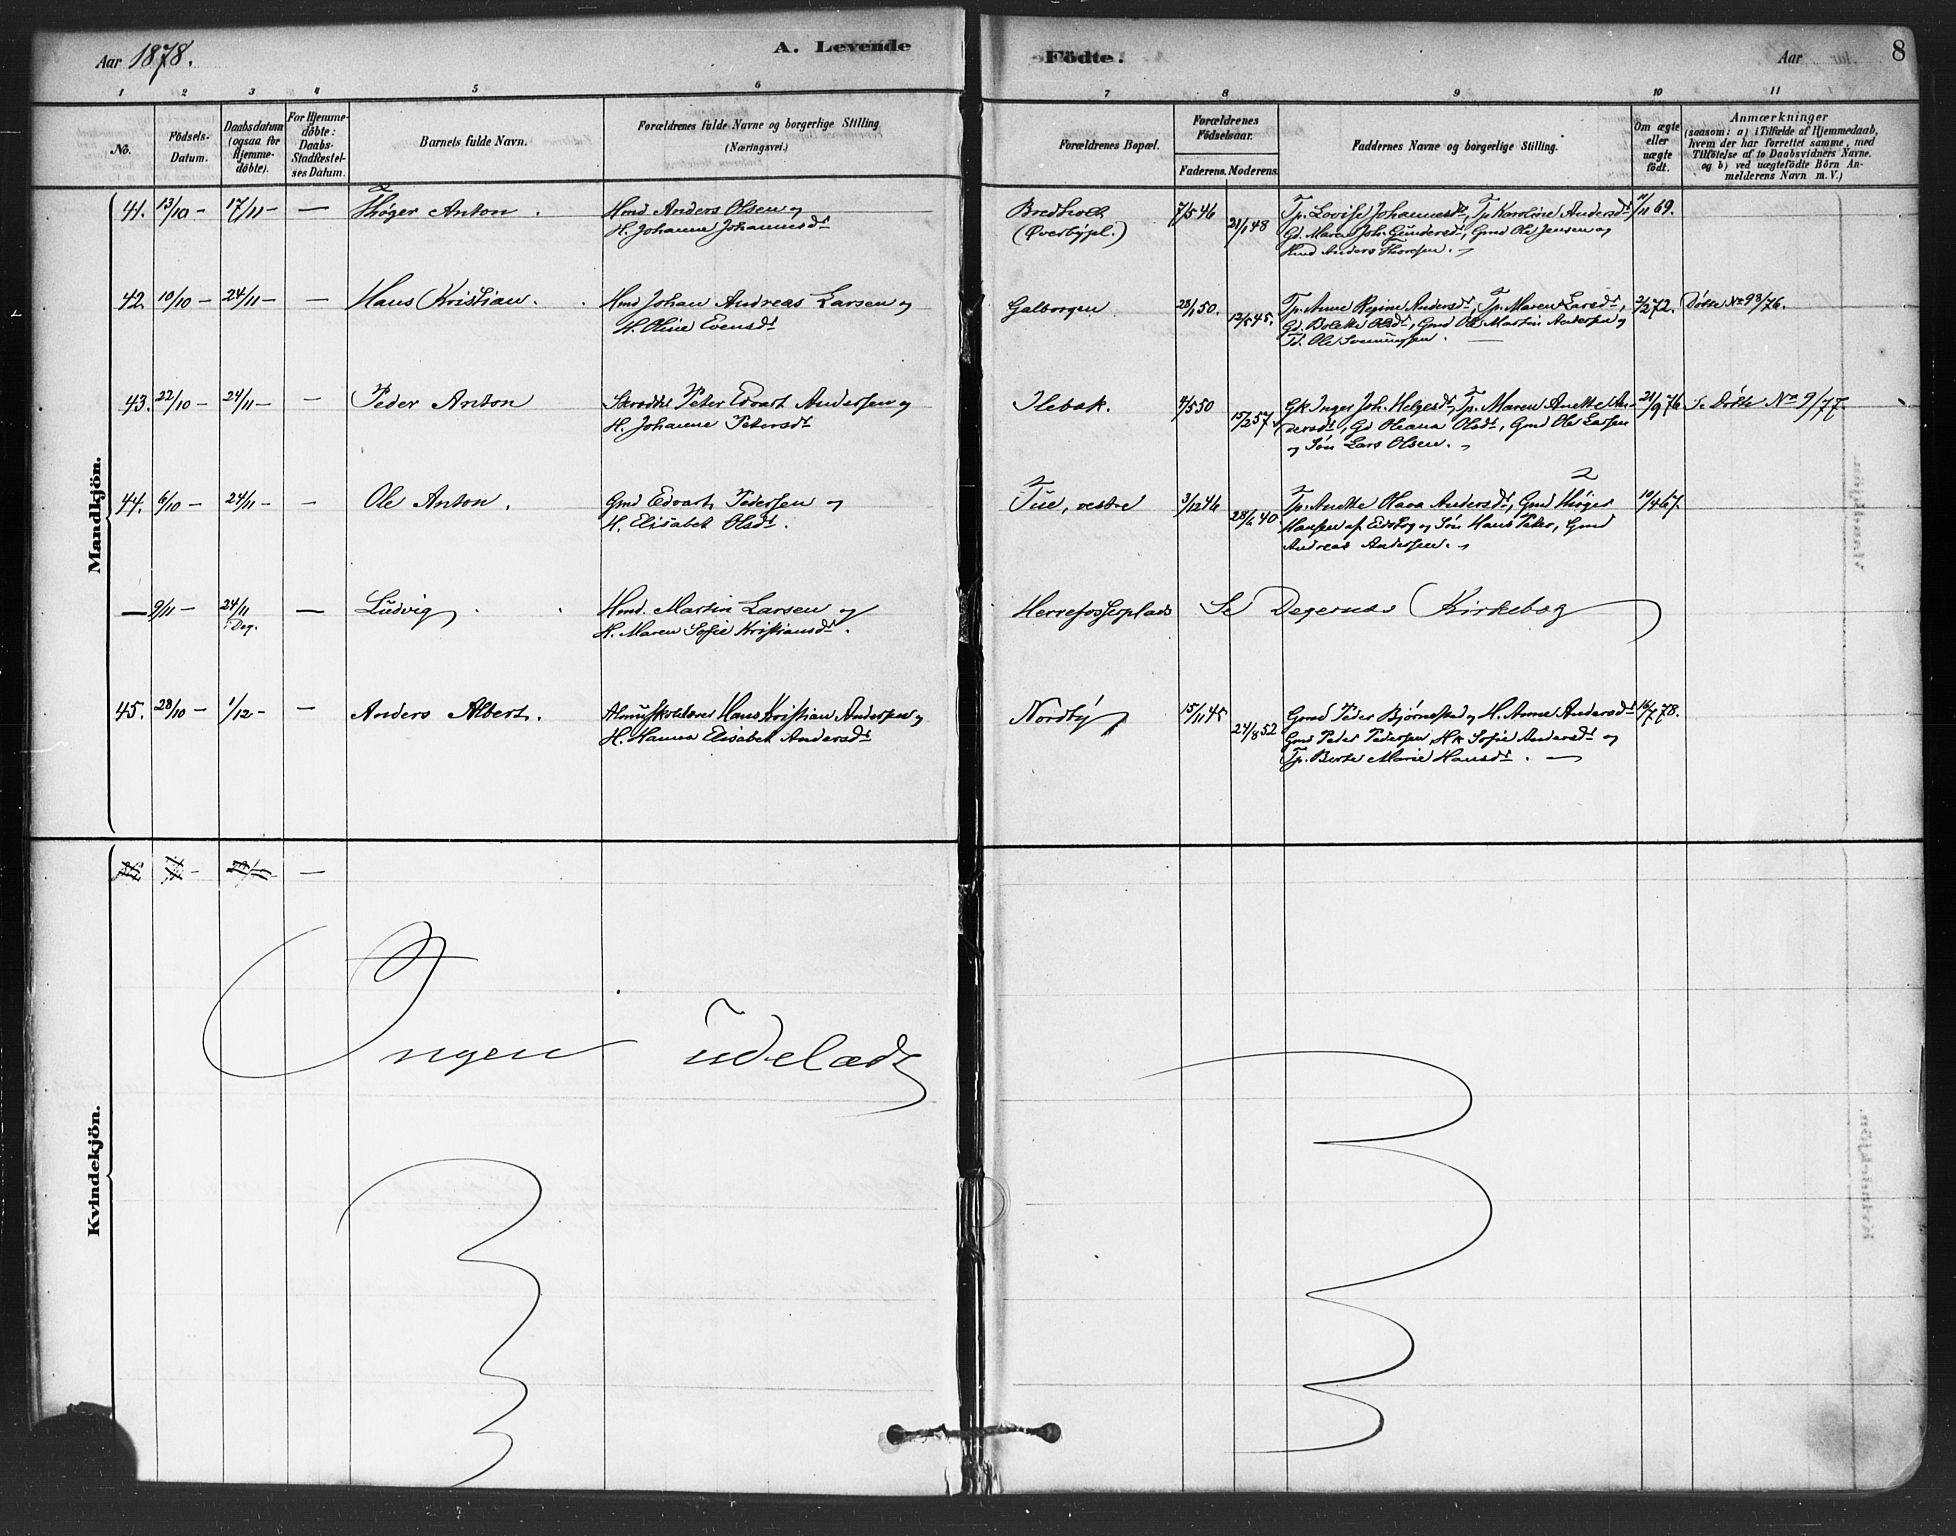 Aar 1878.
A. Levende
Födte.
Aar
8
1 2 3 4 5 6 7 8 9 10 11
No.
Födsels-Datum.
Daabsdatum (ogsaa for Hjemme-döbte).
For Hjemme-döbte: Daabs-Stadfæstel-ses Datum.
Barnets fulde Navn.
Forældrenes fulde Navne og borgerlige Stilling (Næringsvei.)
Forældrenes Bopæl.
Forældrenes Födselsaar.
Faderens. Moderens.
Faddernes Navne og borgerlige Stilling.
Om ægte eller uægte födt.
Anmærkninger
(saasom: a) i Tilfælde af Hjemmedaab,
hvem der har forrettet samme, med
Tilföielse af to Daabsvidners Navne.
og b) ved uægtefödte Börn An-
melderens Navn m. V.)
Mandkjön.
41. 13/10 - 17/11 - — Thøger Anton . Hmd Anders Olsen og
H. Johanne Johannesdr
Bredholt
(Øverbypl.)
7/5 46 21/1 48
Tp. Lovise Johannesdr, Tp Karoline Andersdr
Gd. Maren Joh. Gundersdr, Gmd Ole Jensen og
Hmd Anders Thoresen.
7/11 69.
42. 10/10 - 24/11 - — Hans Kristian . Hmd Johan Andreas Larsen og
H. Oline Evensdr
Galborgen
28/1 50. 12/5 45.
Tp. Anne Regine Andersdr, Tp. Maren Larsdr,
Gd. Bolette Olsdr, Gmd Ole Martin Andersen og
Td. Ole Svenningsen.
2/2 72. Døtte No 98/76.
43. 22/10 - 24/11 - — Peder Anton Skrædder Peter Edvart Andersen og
H. Johanne Petersdr
Ilebæk.
4/5 50 15/2 57
Gk Inger Joh. Helgesdr, Tp. Maren Anette An-
dersdr, Gd Oleana Olsdr, Gmd Ole Larsen
og Søn Lars Olsen.
21/9 76 Se Døtte No 9/77
44. 6/10 - 24/11 - — Ole Anton . Gmd Edvart Pedersen og
H. Elisabet Olsdr.
Tue, vestre
3/12 46 28/6 40
Tp. Anette Olava Andersdr, Gmd Thøger
Hansen af Eidskog og Søn Hans Peter, Gmd
Andreas Andersen.
10/4 67.
— 9/11 - 24/11 i Deg. — Ludvig Hmd. Martin Larsen og
H. Maren Sofie Kristiansdr.
Herrefosserplads Se Degernes Kirkebog
45. 28/10 - 1/12 - — Anders Albert. Almuskolelærer Hans Kristian Andersen og
H. Hanna Elisabet Andersdr
Nordby
15/11 45 24/8 52
Gmd Peder Bjørnestad og H. Anne Andersdr
Gmd Peder Pedersen, Hk Sofie Andersdr og
Tp. Berte Marie Hansdr.
16/7 78.
Kvindekjön.
Ingen udeladt